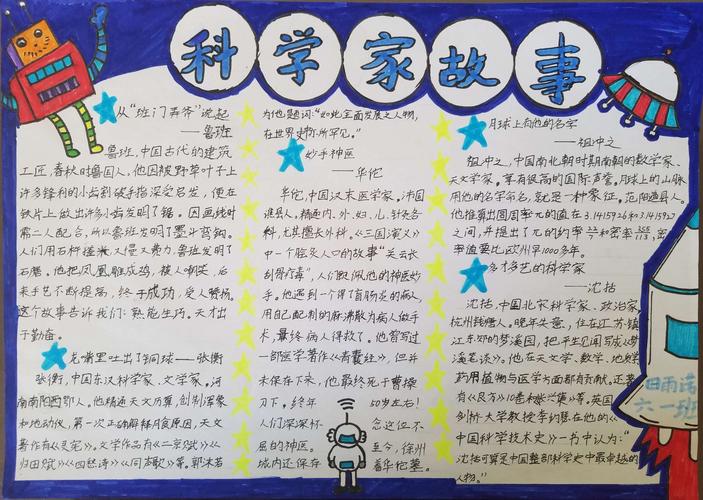 科学家故事
从“班门弄斧”说起
——鲁班
鲁班,中国古代的建筑
工匠,春秋时鲁国人,他因被野草叶子上
许多锋利的小齿割破手指深受启发,便在
铁片上做出许多小齿发明了锯。因画线时
需二人配合,所以鲁班发明了墨斗弯钩。
人们用石杵碰米又慢又费力鲁班发明了
石磨。他把凤凰雕成鸡,被人嘲笑,后
来手艺不断提高,终于成功,受人赞扬。
这个故事告诉我们:熟能生巧。天才出
于勤奋。
龙嘴里吐出了铜球——张衡
张衡,中国东汉科学家、文学家。河
南南阳西鄂人。他精通天文历算,创制浑象
和地动仪,第一次正确解释月食原因,天文
著作有《灵宪》。文学作品有《二京赋》《
归田赋》《四愁诗》《同声歌》等。郭沫若
为他题词:“如此全面发展之人物,
在世界史亦所罕见。”
妙手神医
——华佗
华佗,中国汉末医学家。沛国
谯县人。精通内、外、妇、儿、针灸各
科,尤其擅长外科。《三国演义》
中一个脍炙人口的故事“关云长
刮骨疗毒”,人们叙佩他的神医妙
手。他遇到一个得了盲肠炎的病人,
用自己配制的麻沸散为病人做手
术,最终病人得救了。他曾写过
一部医学著作《青囊经》,但并
未保存下来,他最终死于曹操
刀下。终年50岁左右!
人们深深怀念这位不
屈的神医。至今,徐州
城内还保存着华佗墓。
月球上有他的名字
——祖冲之
祖冲之,中国南北朝时期南朝的数学家、
天文学家。享有很高的国际声誉。月球上的山脉
用他的名字命名,就是一种象征。范阳遒县人。
他推算出圆周率π的值在3.1415926和3.1415927
之间,并提出了π的约率22/7和密率355/113,密
率值要比欧洲早1000多年。
多才多艺的科学家
——沈括
沈括,中国北宋科学家、政治家,
杭州钱塘人。晚年失意,住在江苏镇
江东郊的梦溪园,把平生见闻写成《梦
溪笔谈》。他在天文学、数学、地质学
药用植物与医学方面都有贡献。还著
有《良方》10卷和《长兴集》等。英国
剑桥大学教授李约瑟在他的《
中国科学技术史》一书中认为:“
沈括可算是中国整部科学史中最卓越的
人物。”
田雨诺
六一班